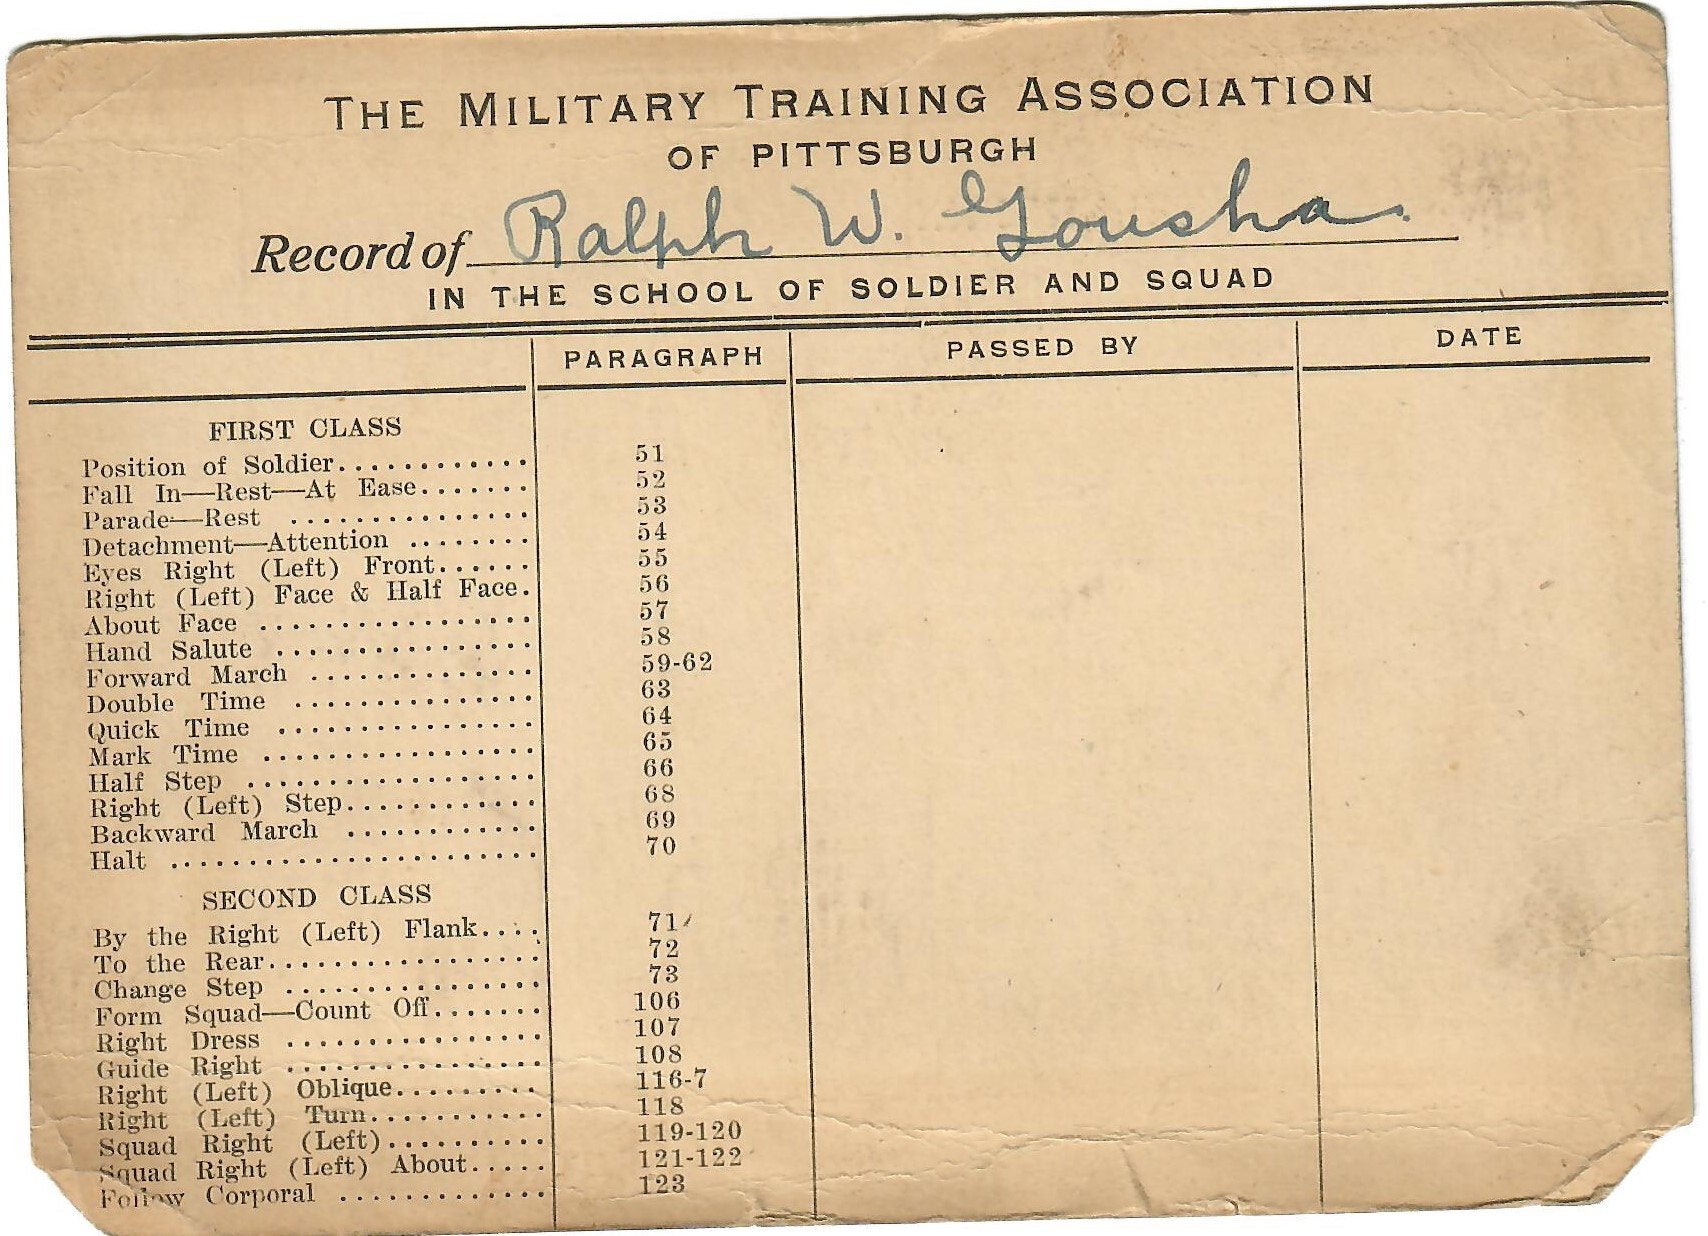 THE MILITARY TRAINING ASSOCIATION
OF PITTSBURGH
Record of Ralph W. Gousha.
IN THE SCHOOL OF SOLDIER AND SQUAD
PARAGRAPH PASSED BY DATE
FIRST CLASS
Position of Soldier............ 51
Fall In—Rest—At Ease....... 52
Parade—Rest ............... 53
Detachment—Attention ........ 54
Eyes Right (Left) Front...... 55
Right (Left) Face & Half Face. 56
About Face ................. 57
Hand Salute ................ 58
Forward March .............. 59-62
Double Time ............... 63
Quick Time ................ 64
Mark Time ................. 65
Half Step .................. 66
Right (Left) Step............ 68
Backward March ............ 69
Halt ....................... 70
SECOND CLASS
By the Right (Left) Flank.... 71
To the Rear................. 72
Change Step ................ 73
Form Squad—Count Off....... 106
Right Dress ................ 107
Guide Right ................ 108
Right (Left) Oblique......... 116-7
Right (Left) Turn........... 118
Squad Right (Left).......... 119-120
Squad Right (Left) About..... 121-122
Follow Corporal ............. 123